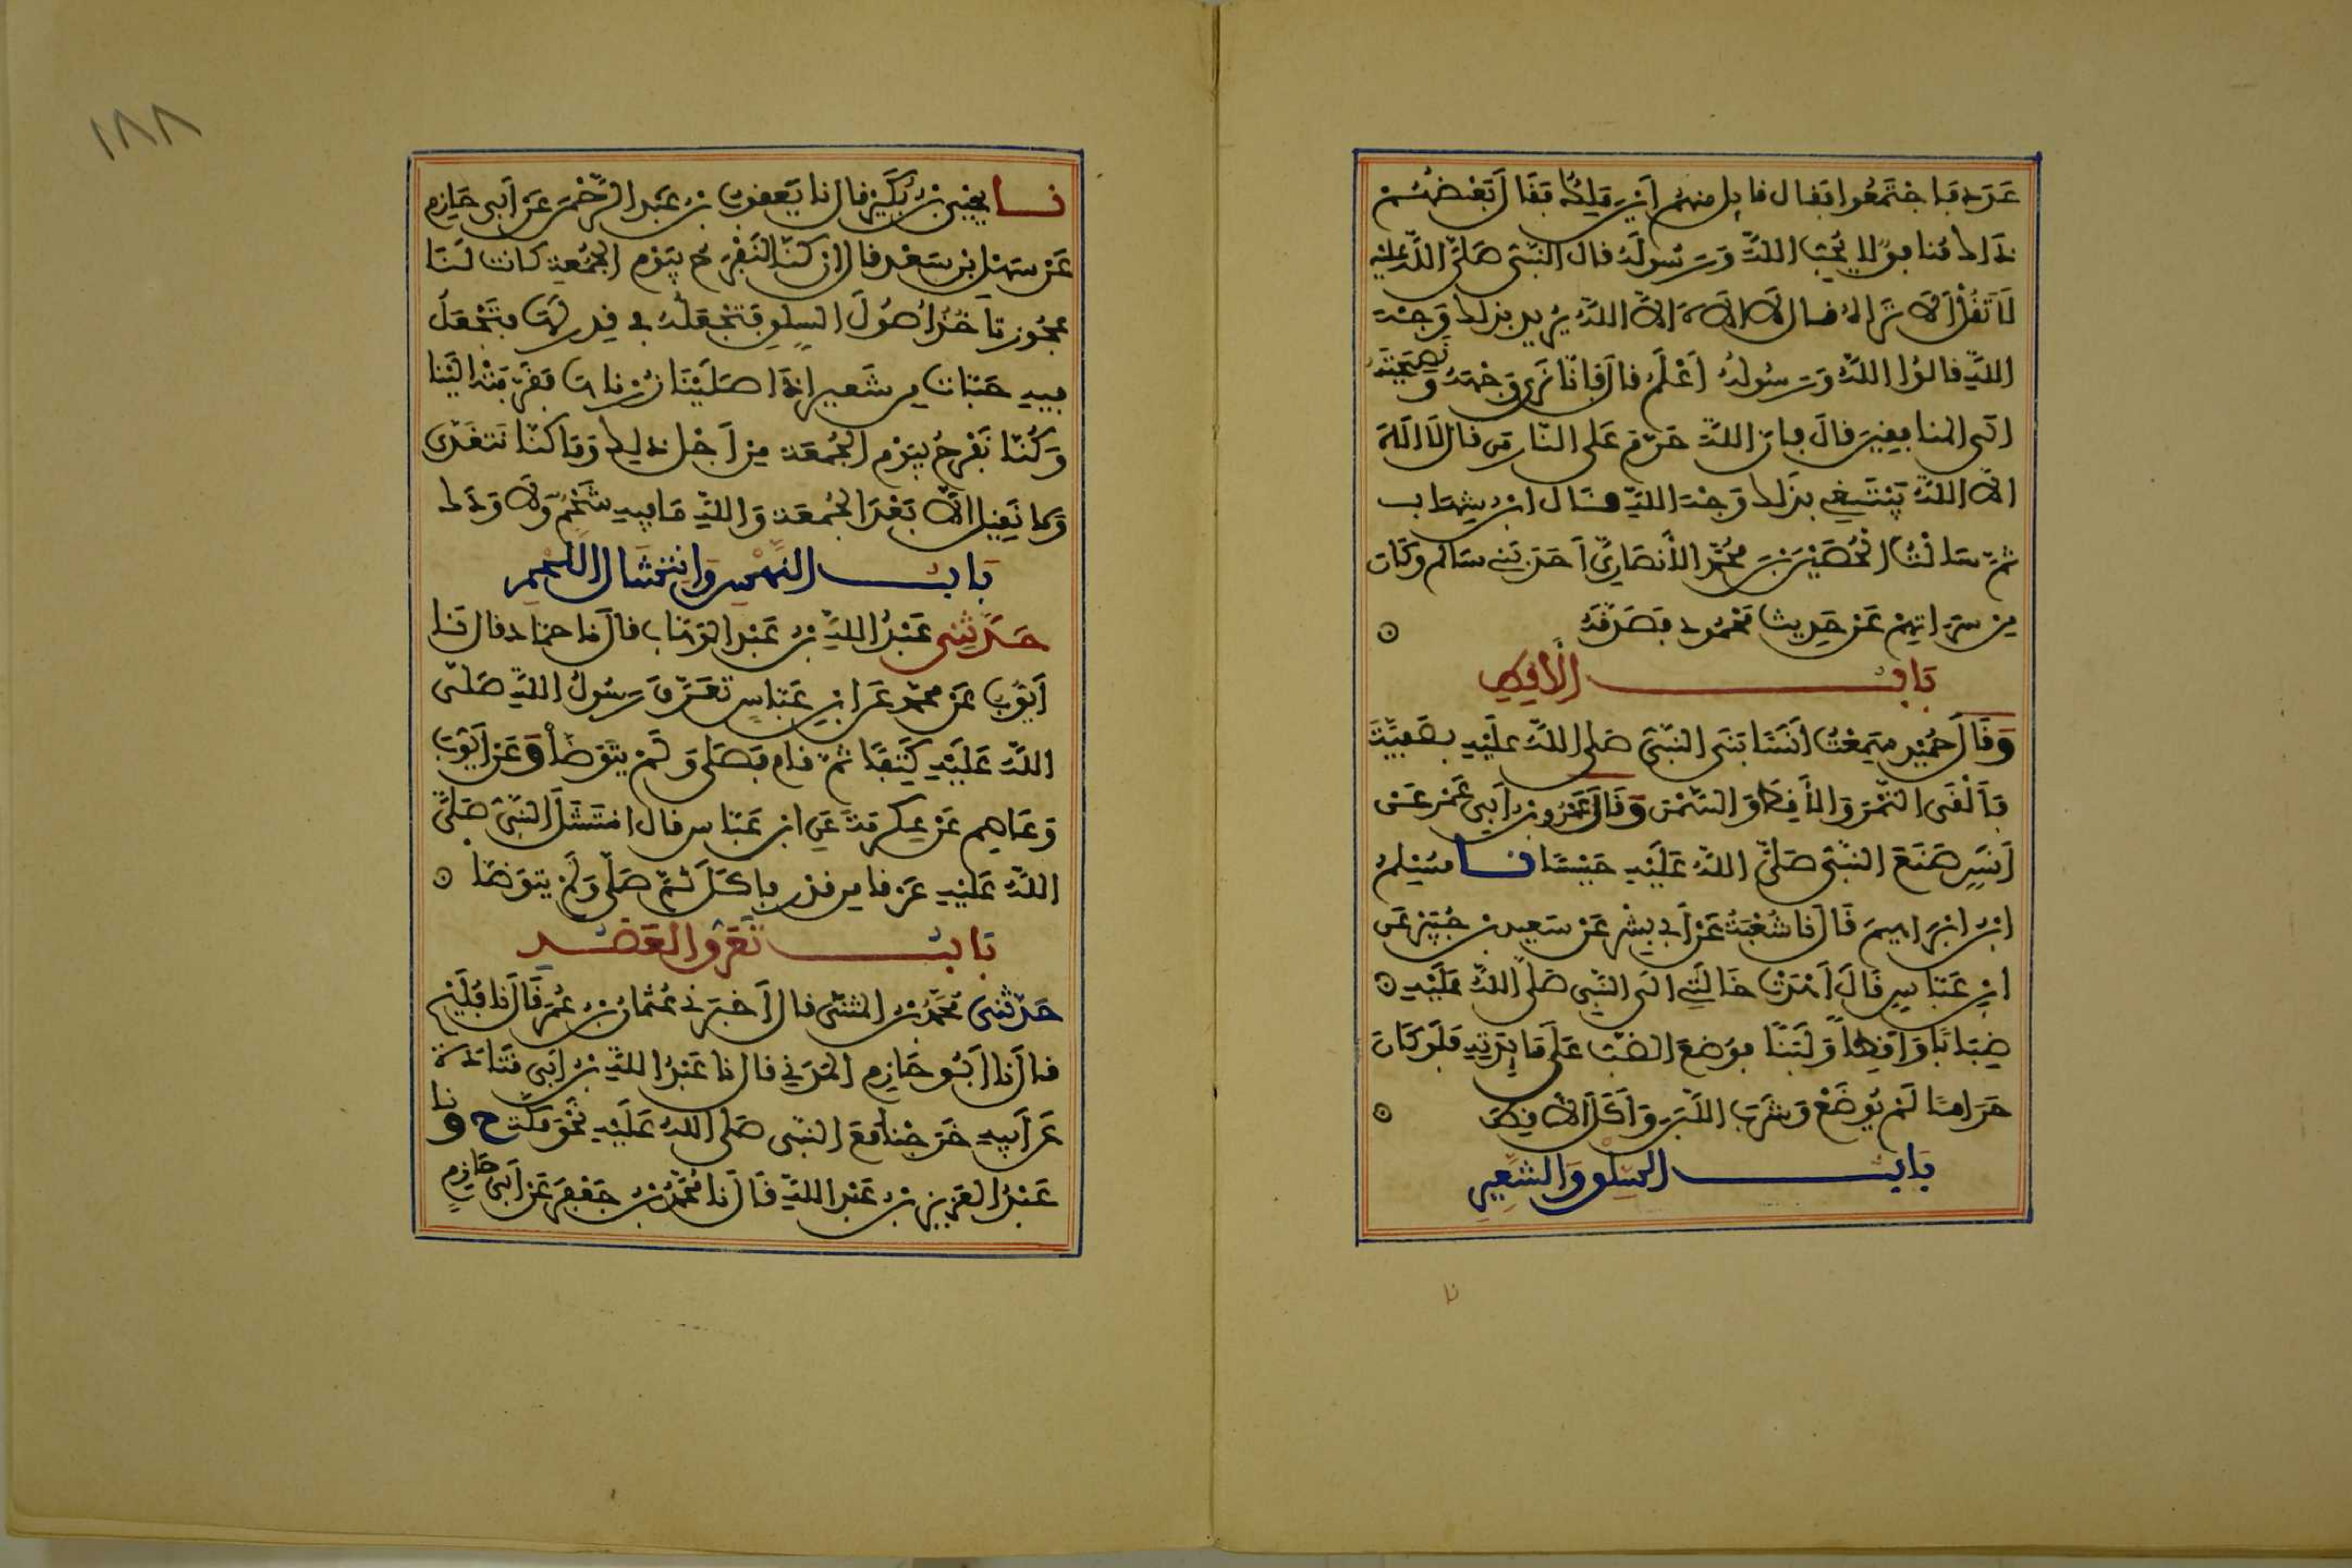 عَدَدٍ فَاجْتَمَعُوا فَقَالَ قَائِلٌ مِنْهُمْ أَيْنَ مَالِكٌ فَقَالَ بَعْضُهُمْ
ذَالِكَ مُنَافِقٌ لَا يُحِبُّ اللَّهَ وَرَسُولَهُ قَالَ النَّبِيُّ صَلَّى اللَّهُ عَلَيْهِ
لَا تَقُلْ أَلَا تَرَاهُ قَالَ لَا إِلَهَ إِلَّا اللَّهُ يُرِيدُ بِذَلِكَ وَجْهَ
اللَّهِ قَالُوا اللَّهُ وَرَسُولُهُ أَعْلَمُ قَالَ فَإِنَّا نَرَى وَجْهَهُ وَنَصِيحَتَهُ
إِلَى الْمُنَافِقِينَ قَالَ فَإِنَّ اللَّهَ حَرَّمَ عَلَى النَّارِ مَنْ قَالَ لَا إِلَهَ
إِلَّا اللَّهُ يَبْتَغِي بِذَلِكَ وَجْهَ اللَّهِ قَالَ ابْنُ شِهَابٍ
ثُمَّ سَأَلْتُ الْحُصَيْنَ بْنَ مُحَمَّدٍ الْأَنْصَارِيَّ أَحَدَ بَنِي سَالِمٍ وَكَانَ
مِنْ سَرَاتِهِمْ عَنْ حَدِيثِ مَحْمُودٍ فَصَدَّقَهُ
بَابُ الْأَقِطِ
وَقَالَ حُمَيْدٌ سَمِعْتُ أَنَسًا بَنَى النَّبِيُّ صَلَّى اللَّهُ عَلَيْهِ بِصَفِيَّةَ
فَأَلْقَى التَّمْرَ وَالْأَقِطَ وَالسَّمْنَ وَقَالَ عَمْرُو بْنُ أَبِي عَمْرٍ عَنْ
أَنَسٍ صَنَعَ النَّبِيُّ صَلَّى اللَّهُ عَلَيْهِ حَيْسًا نا مُسْلِمُ
ابْنُ إِبْرَاهِيمَ قَالَ نا شُعْبَةُ عَنْ أَبِي بِشْرٍ عَنْ سَعِيدِ بْنِ جُبَيْرٍ عَنِ
ابْنِ عَبَّاسٍ قَالَ أَهْدَتْ خَالَتِي إِلَى النَّبِيِّ صَلَّى اللَّهُ عَلَيْهِ
ضِبَابًا وَأَقِطًا وَلَبَنًا فَوُضِعَ الضَّبُّ عَلَى مَائِدَتِهِ فَلَوْ كَانَ
حَرَامًا لَمْ يُوضَعْ وَشَرِبَ اللَّبَنَ وَأَكَلَ الْأَقِطَ
بَابُ السِّلْقِ وَالشَّعِيرِ
نا
١٨٨
نا يَحْيَى بْنُ بُكَيْرٍ قَالَ نا يَعْقُوبُ بْنُ عَبْدِ الرَّحْمَنِ عَنْ أَبِي حَازِمٍ
عَنْ سَهْلِ بْنِ سَعْدٍ قَالَ إِنْ كُنَّا لَنَفْرَحُ بِيَوْمِ الْجُمُعَةِ كَانَتْ لَنَا
عَجُوزٌ تَأْخُذُ أُصُولَ السِّلْقِ فَتَجْعَلُهُ فِي قِدْرٍ لَهَا فَتَجْعَلُ
فِيهِ حَبَّاتٍ مِنْ شَعِيرٍ إِذَا صَلَّيْنَا زُرْنَاهَا فَقَرَّبَتْهُ إِلَيْنَا
وَكُنَّا نَفْرَحُ بِيَوْمِ الْجُمُعَةِ مِنْ أَجْلِ ذَلِكَ وَمَا كُنَّا نَتَغَدَّى
وَلَا نَقِيلُ إِلَّا بَعْدَ الْجُمُعَةِ وَاللَّهِ مَا فِيهِ شَحْمٌ وَلَا وَدَكٌ
بَابُ النَّهْسِ وَانْتِشَالِ اللَّحْمِ
حَدَّثَنِي عَبْدُ اللَّهِ بْنُ عَبْدِ الْوَهَّابِ قَالَ نا حَمَّادٌ قَالَ نَا
أَيُّوبُ عَنْ مُحَمَّدٍ عَنِ ابْنِ عَبَّاسٍ تَعَرَّقَ رَسُولُ اللَّهِ صَلَّى
اللَّهُ عَلَيْهِ كَتِفًا ثُمَّ قَامَ فَصَلَّى وَلَمْ يَتَوَضَّأْ وَعَنْ أَيُّوبَ
وَعَاصِمٍ عَنْ عِكْرِمَةَ عَنِ ابْنِ عَبَّاسٍ قَالَ انْتَشَلَ النَّبِيُّ صَلَّى
اللَّهُ عَلَيْهِ عَرْقًا مِنْ قِدْرٍ فَأَكَلَ ثُمَّ صَلَّى وَلَمْ يَتَوَضَّأْ
بَابُ تَعَرُّقِ الْعَضُدِ
حَدَّثَنِي مُحَمَّدُ بْنُ الْمُثَنَّى قَالَ أَخْبَرَنِي عُثْمَانُ بْنُ عُمَرَ قَالَ نا فُلَيْحٌ
قَالَ نَا أَبُو حَازِمٍ الْمَدَنِي قَالَ نا عَبْدُ اللَّهِ بْنُ أَبِي قَتَادَةَ
عَنْ أَبِيهِ خَرَجْنَا مَعَ النَّبِيِّ صَلَّى اللَّهُ عَلَيْهِ نَحْوَ مَكَّةَ ح ونا
عَبْدُ الْعَزِيزِ بْنُ عَبْدِ اللَّهِ قَالَ نَا مُحَمَّدُ بْنُ جَعْفَرٍ عَنْ أَبِي حَازِمٍ